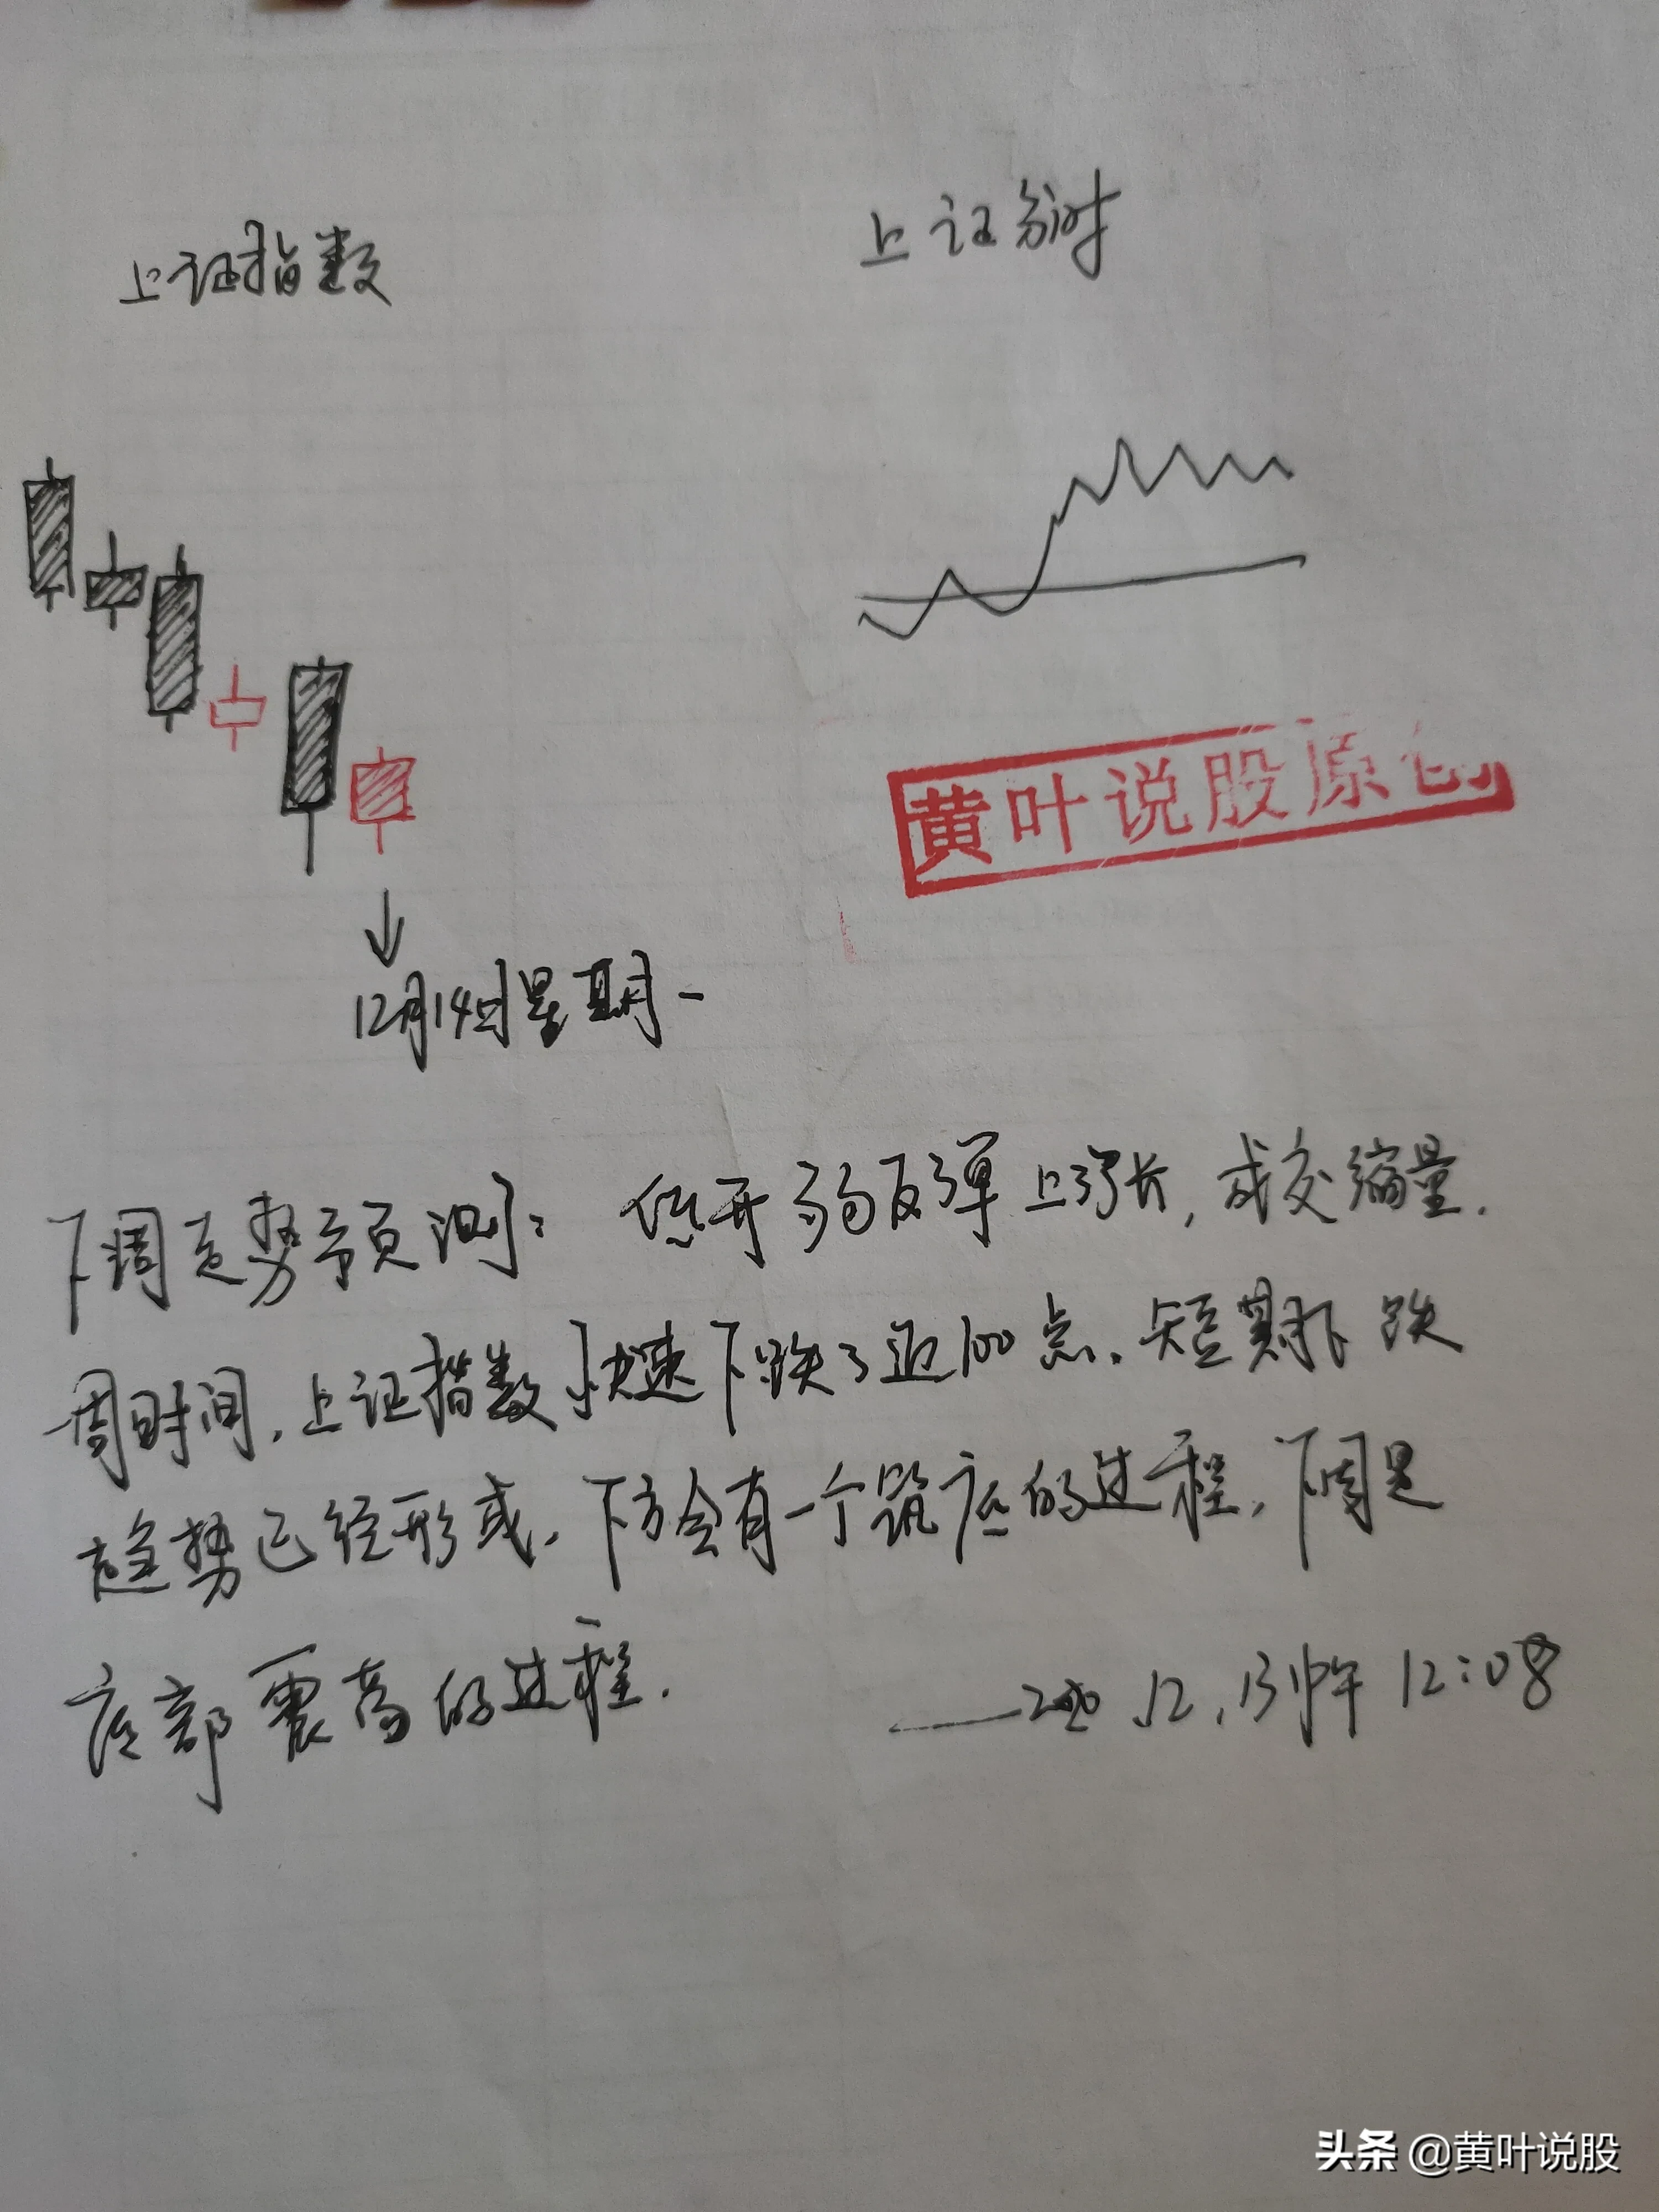 上证指数
上证分时
黄叶说股原创
12月14日星期一
下周走势预测：低开弱反弹上涨，成交缩量.
周时间，上证指数快速下跌了近100点．短期下跌
趋势已经形成．下方会有一个筑底的过程．下周是
底部震荡的过程．
——2020.12.13中午12:08
头条 @黄叶说股